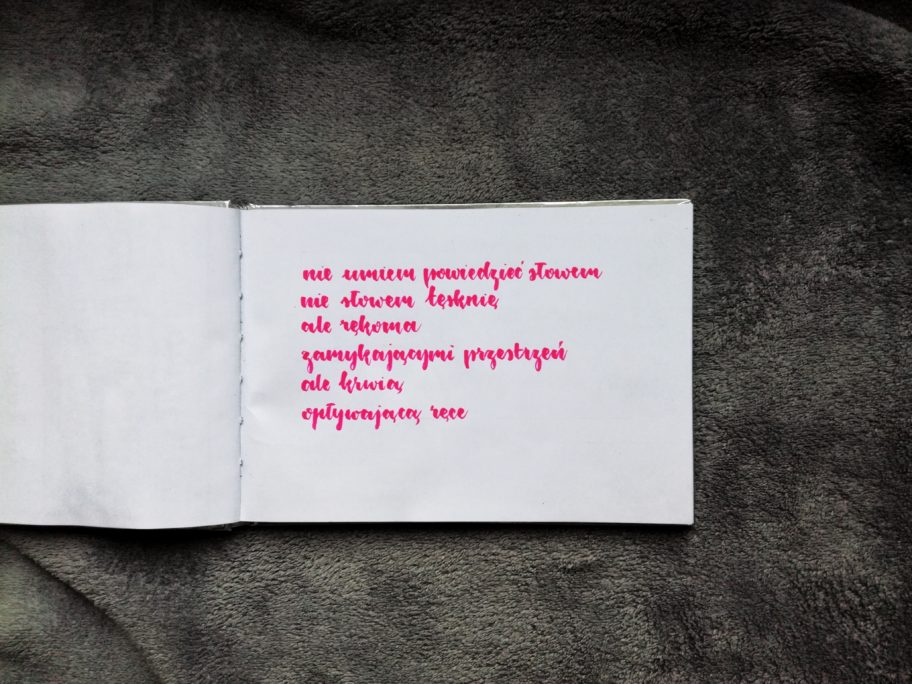 nie umiem powiedzieć słowem
nie słowem tęsknię
ale rękoma
zamykającymi przestrzeń
ale krwią
opływającą ręce